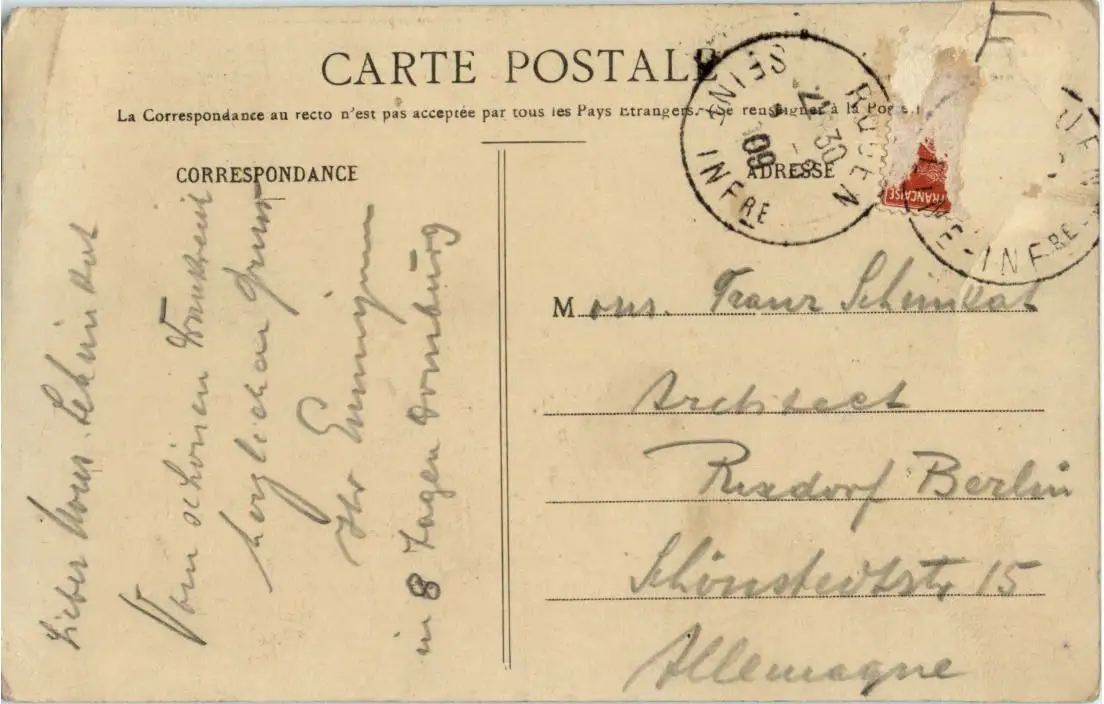 CARTE POSTALE
La Correspondance au recto n'est pas acceptée par tous les Pays Etrangers. Se renseigner à la Poste.
CORRESPONDANCE
ADRESSE
ROUEN
SEINE INFRE
2 30
8
09
FRANÇAISE
UEN
NE-INFRE-
Lieber Mons.
Vom schönen Frankreich
herzlichen Gruss
Ihr
in 8 Tagen
Mons. Franz
Architect
Rixdorf Berlin
Schönstedtstr 15
Allemagne